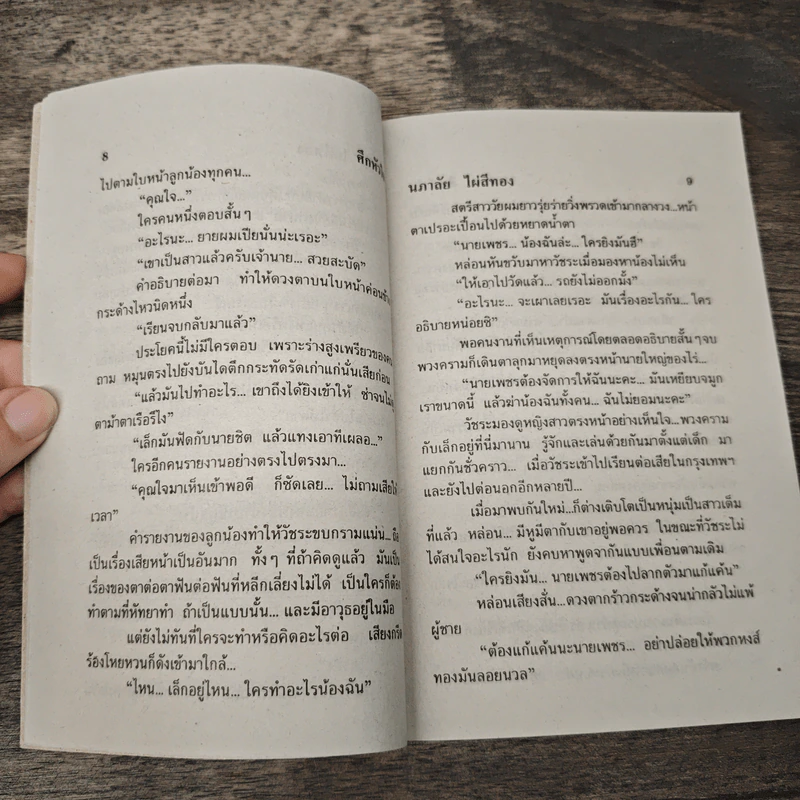 8
ศึกหัวใ
ไปตามใบหน้าลูกน้องทุกคน...
“คุณใจ...”
ใครคนหนึ่งตอบสั้นๆ
“อะไรนะ... ยายผมเปียนั่นน่ะเรอะ”
“เขาเป็นสาวแล้วครับเจ้านาย... สวยสะบัด”
คำอธิบายต่อมา ทำให้ดวงตาบนใบหน้าค่อนข้าง
กระด้างไหวนิดหนึ่ง
“เรียนจบกลับมาแล้ว”
ประโยคนี้ไม่มีใครตอบ เพราะร่างสูงเพรียวของคน
ถาม หมุนตรงไปยังบันไดตึกกระทัดรัดเก่าแก่นั่นเสียก่อน
“แล้วมันไปทำอะไร... เขาถึงได้ยิงเข้าให้ ซ่าจนไม่ดู
ตาม้าตาเรือรึไง”
“เล็กมันฟัดกับนายชิต แล้วแทงเอาทีเผลอ...”
ใครอีกคนรายงานอย่างตรงไปตรงมา...
“คุณใจมาเห็นเข้าพอดี ก็ซัดเลย... ไม่ถามเสียให้
เวลา”
คำรายงานของลูกน้องทำให้วัชระขบกรามแน่น... ถือ
เป็นเรื่องเสียหน้าเป็นอันมาก ทั้งๆ ที่ถ้าคิดดูแล้ว มันเป็น
เรื่องของตาต่อตาฟันต่อฟันที่หลีกเลี่ยงไม่ได้ เป็นใครก็ต้อง
ทำตามที่หัทยาทำ ถ้าเป็นแบบนั้น... และมีอาวุธอยู่ในมือ
แต่ยังไม่ทันที่ใครจะทำหรือคิดอะไรต่อ เสียงกรีด
ร้องโหยหวนก็ดังเข้ามาใกล้...
“ไหน... เล็กอยู่ไหน... ใครทำอะไรน้องฉัน”
นภาลัย ไผ่สีทอง
9
สตรีสาววัยผมยาวรุ่ยร่ายวิ่งพรวดเข้ามากลางวง...หน้า
ตาเปรอะเปื้อนไปด้วยหยาดน้ำตา
“นายเพชร... น้องฉันล่ะ... ใครยิงมันฮึ”
หล่อนหันขวับมาหาวัชระเมื่อมองหาน้องไม่เห็น
“ให้เอาไปวัดแล้ว... รถยังไม่ออกมั้ง”
“อะไรนะ... จะเผาเลยเรอะ มันเรื่องอะไรกัน... ใคร
อธิบายหน่อยซิ”
พอคนงานที่เห็นเหตุการณ์โดยตลอดอธิบายสั้นๆจบ
พวงครามก็เดินตาลุกมาหยุดลงตรงหน้านายใหญ่ของไร่...
“นายเพชรต้องจัดการให้ฉันนะคะ... มันเหยียบจมูก
เราขนาดนี้ แล้วฆ่าน้องฉันทั้งคน... ฉันไม่ยอมนะคะ”
วัชระมองดูหญิงสาวตรงหน้าอย่างเห็นใจ...พวงคราม
กับเล็กอยู่ที่นี่มานาน รู้จักและเล่นด้วยกันมาตั้งแต่เด็ก มา
แยกกันชั่วคราว... เมื่อวัชระเข้าไปเรียนต่อเสียในกรุงเทพฯ
และยังไปต่อนอกอีกหลายปี...
เมื่อมาพบกันใหม่...ก็ต่างเติบโตเป็นหนุ่มเป็นสาวเต็ม
ที่แล้ว หล่อน... มีหูมีตากับเขาอยู่พอควร ในขณะที่วัชระไม่
ได้สนใจอะไรนัก ยังคบหาพูดจากันแบบเพื่อนตามเดิม
“ใครยิงมัน... นายเพชรต้องไปลากตัวมาแก้แค้น”
หล่อนเสียงสั่น...ดวงตากร้าวกระด้างจนน่ากลัวไม่แพ้
ผู้ชาย
“ต้องแก้แค้นนะนายเพชร... อย่าปล่อยให้พวกหงส์
ทองมันลอยนวล”